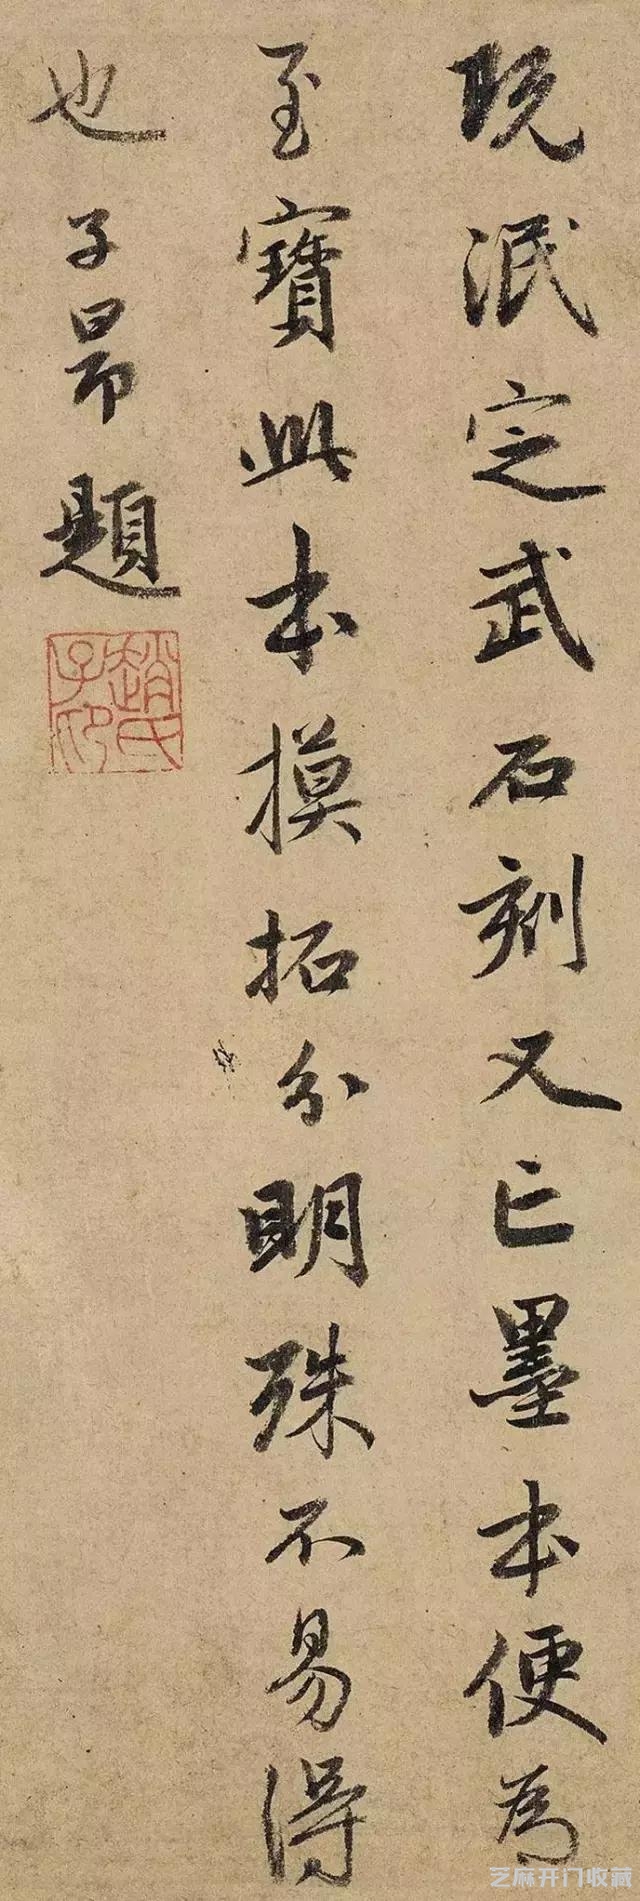 既泯定武石刻又亡墨本便為
至寶此本摸拓分明殊不易得
也子昂題
趙氏子印
芝麻开门收藏